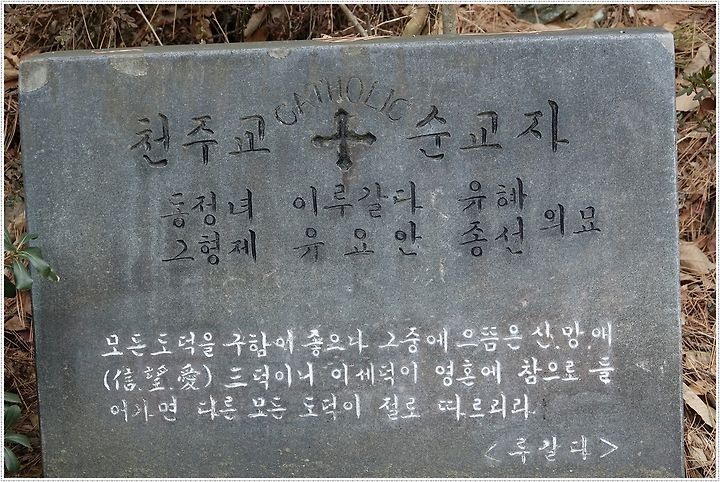 CATHOLIC
천주교 순교자
동정녀 이루갈다 유혜
그형제 유요안 종선 의묘
모든 도덕을 구함이 좋으나 그중에 으뜸은 신.망.애
(信.望.愛) 三덕이니 이세덕이 영혼에 참으로 들
어가면 다른 모든 도덕이 절로 따르리라
<루갈다>